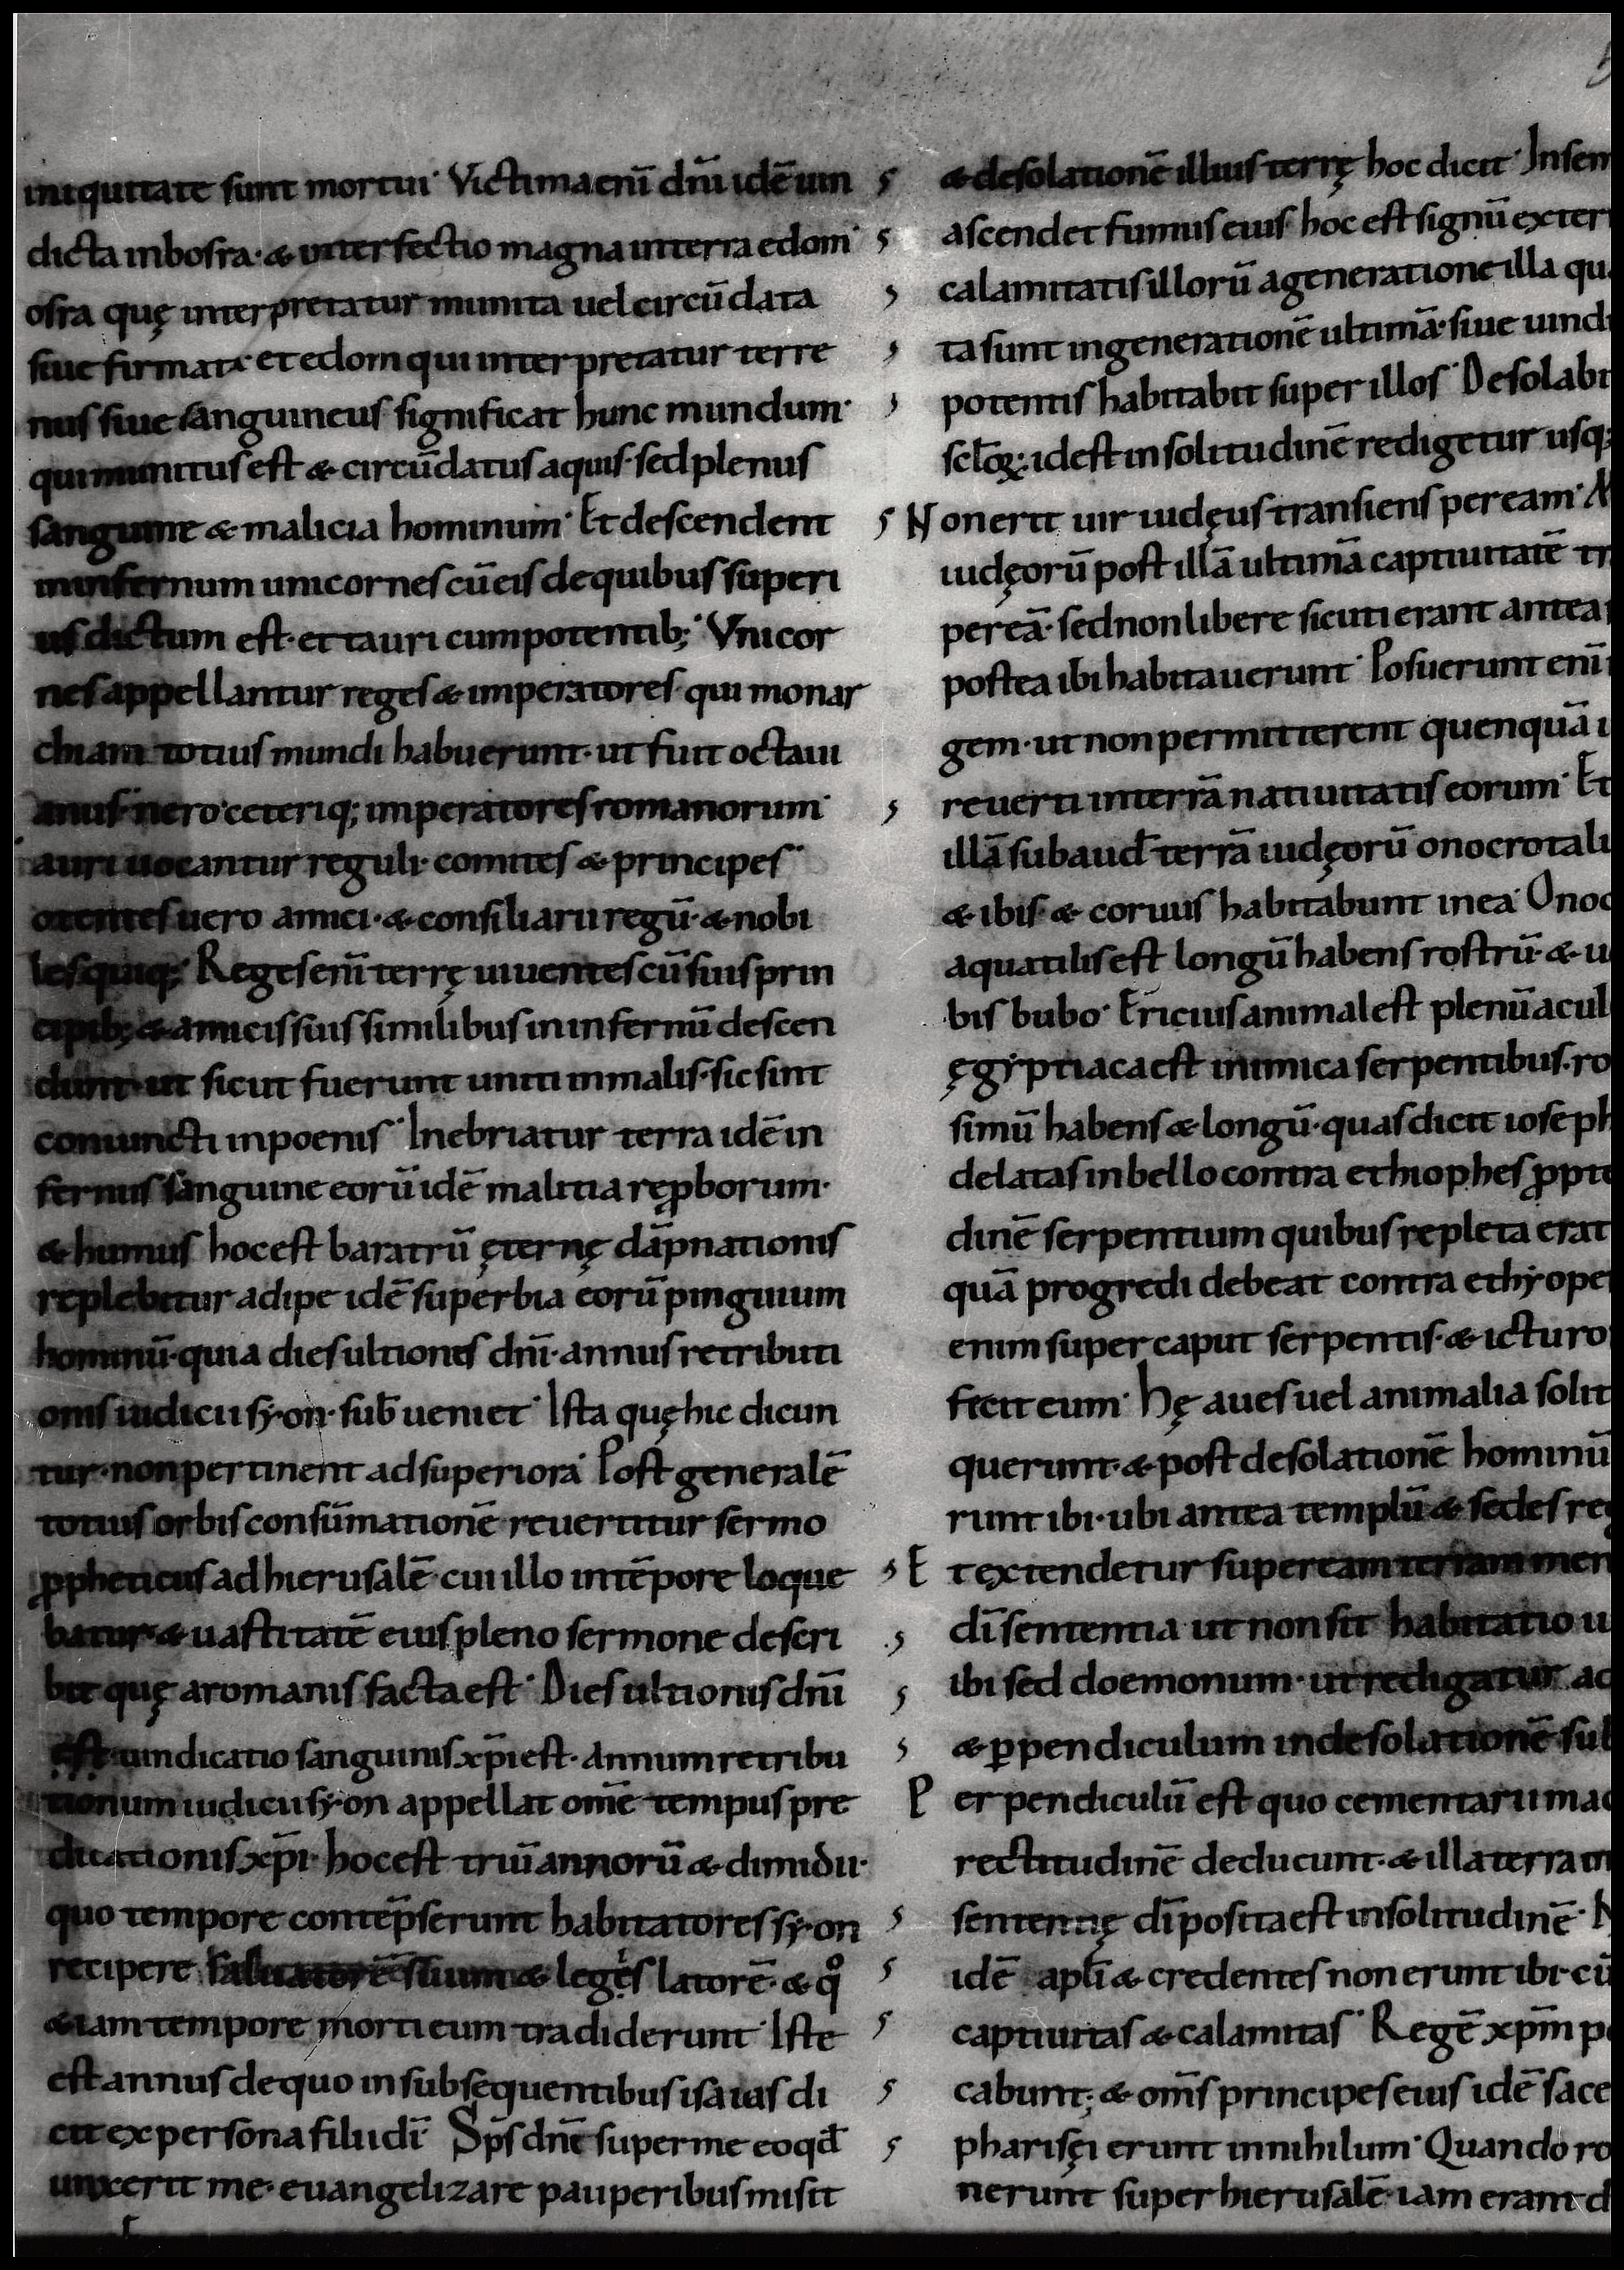 iniquitate sunt mortui· Victima eni̅ dn̅i idē uin
dicta in bosra· & interfectio magna in terra edom·
osra quę interpretatur munita uel circūdata
siue firmata et edom qui interpretatur terre
nus siue sanguineus significat hunc mundum·
qui munitus est & circūdatus aquis· sed plenus
sanguine & malicia hominum· Et descendent
in infernum unicornes cū eis de quibus superi
us dictum est· et tauri cum potentib; Vnicor
nes appellantur reges & imperatores· qui monar
chiam totius mundi habuerunt· ut fuit octaui
anus· nero· ceteriq; imperatores romanorum·
auri uocantur reguli· comites & principes·
otentes uero amici· & consiliarii regū· & nobi
les quiq; Reges eni̅ terrę uiuentes cū suis prin
cipib; & amicis suis similibus in infernū descen
dunt· ut sicut fuerunt uniti in malis· sic sint
coniuncti in poenis· Inebriatur terra idē in
fernus sanguine eorū idē malitia reꝓborum·
& humus hoc est baratrū ęternę dāpnationis
replebitur adipe idē superbia eorū pinguium
hominū· quia dies ultionis dn̅i· annus retributi
onis iudicii sy̓on· sub̅ ueniet· Ista quę hic dicun
tur· non pertinent ad superiora· Post generalē
totius orbis consūmationē reuertitur sermo
ꝓpheticus ad hierusalē· cui illo in tēpore loque
batur· & uastitatē eius pleno sermone descri
bit quę a romanis facta est· Dies ultionis dn̅i
est uindicatio sanguinis xp̅i est· Annum retribu
tionum iudicii sy̓on appellat om̅e tempus pre
dicationis xp̅i· hoc est triū annorū & dimidii·
quo tempore contēpserunt habitatores sy̓on
recipere saluatorē suum & leges latorē· & qº
&iam tempore morti eum tradiderunt· Iste
est annus de quo in subsequentibus isaias di
cit ex persona filii di̅ Sp̅s dn̅i super me eo qd̅
unxerit me· euangelizare pauperibus misit
& desolationē illius terrę hoc dicit· In sem
ascendet fumus eius· hoc est signū exter
calamitatis illorū a generatione illa qu
ta sunt in generationē ultimā· siue uind
potentis habitabit super illos· Desolabi
scl̅oꝝ: id est in solitudinē redigetur usq;
Non erit uir iudęus transiens per eam·
iudęorū post illā ultimā captiuitatē tr
per eā· sed non libere sicuti erant antea
postea ibi habitauerunt· Posuerunt eni̅
gem· ut non permitterent quenquā i
reuerti in terrā natiuitatis eorum· Et
illā subaud̅ terrā iudęorū onocrotali
& ibis & coruus habitabunt in ea· Onoc
aquatilis est longū habens rostrū· & u
bis bubo· Ericius animal est plenū acul
ęgyptiaca est inimica serpentibus· ro
simū habens & longū· quas dicit ioseph
delatas in bello contra ethiophes ꝓpte
dinē serpentium quibus repleta erat
quā progredi debeat contra ethyope
enim super caput serpentis· & ictu ro
ficit eum· Hę aues uel animalia solit
querunt· & post desolationē hominū
runt ibi· ubi antea templū & sedes reg
Et extendetur super eam terram men
di̅ sententia ut non sit habitatio u
ibi sed doemonum· ut redigatur ad
& ꝑpendiculum in desolationē· sub
Perpendiculū est quo cementarii mac
rectitudinē deducunt· & illa terra in
sententię di̅ posita est in solitudinē·
idē apl̅i & credentes non erunt ibi· cū
captiuitas & calamitas· Regē xp̅m p
cabunt; & om̅s principes eius idē sace
pharisęi erunt in nihilum· Quando ro
nerunt super hierusalē· iam erant d